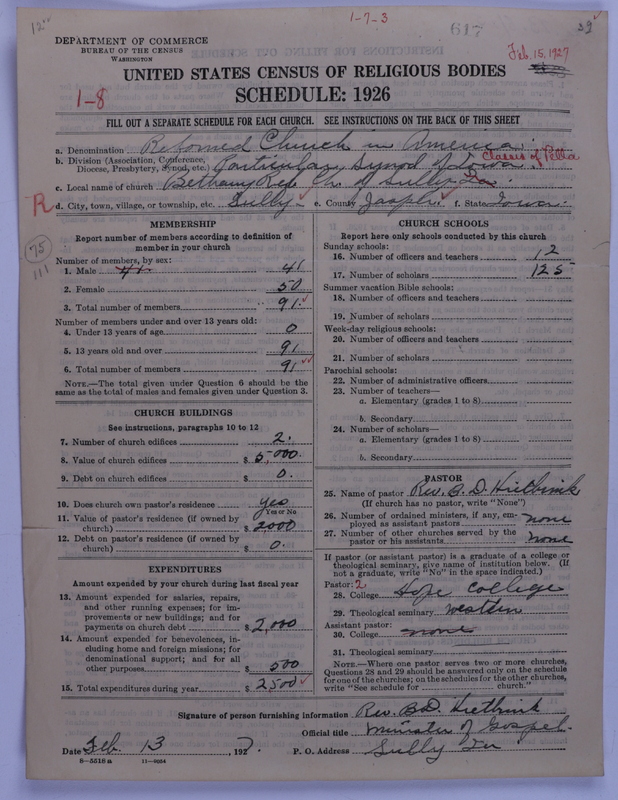 12
1-7-3
617
39
DEPARTMENT OF COMMERCE
BUREAU OF THE CENSUS
WASHINGTON
Feb. 15, 1927
UNITED STATES CENSUS OF RELIGIOUS BODIES
1-8
SCHEDULE: 1926
FILL OUT A SEPARATE SCHEDULE FOR EACH CHURCH. SEE INSTRUCTIONS ON THE BACK OF THIS SHEET
a. Denomination Reformed Church in America
b. Division (Association, Conference, Diocese, Presbytery, Synod, etc.) Particular Synod of Iowa. Classis of Pella
c. Local name of church Bethany Ref. Ch. of Sully Ia.
R d. City, town, village, or township, etc. Sully e. County Jasper f. State Iowa
75
111
MEMBERSHIP
Report number of members according to definition of
member in your church
Number of members, by sex:
1. Male 41. 41
2. Female 50
3. Total number of members 91
Number of members under and over 13 years old:
4. Under 13 years of age 0
5. 13 years old and over 91
6. Total number of members 91
NOTE.—The total given under Question 6 should be the
same as the total of males and females given under Question 3.
CHURCH BUILDINGS
See instructions, paragraphs 10 to 12
7. Number of church edifices 2.
8. Value of church edifices $ 5,000.
9. Debt on church edifices $ 0.
10. Does church own pastor's residence yes
Yes or No
11. Value of pastor's residence (if owned by
church) $ 2000
12. Debt on pastor's residence (if owned by
church) $ 0.
EXPENDITURES
Amount expended by your church during last fiscal year
13. Amount expended for salaries, repairs,
and other running expenses; for im-
provements or new buildings; and for
payments on church debt $ 2,000
14. Amount expended for benevolences, in-
cluding home and foreign missions; for
denominational support; and for all
other purposes $ 500
15. Total expenditures during year $ 2500
CHURCH SCHOOLS
Report here only schools conducted by this church
Sunday schools:
16. Number of officers and teachers 12
17. Number of scholars 125
Summer vacation Bible schools:
18. Number of officers and teachers
19. Number of scholars
Week-day religious schools:
20. Number of officers and teachers
21. Number of scholars
Parochial schools:
22. Number of administrative officers
23. Number of teachers—
a. Elementary (grades 1 to 8)
b. Secondary
24. Number of scholars—
a. Elementary (grades 1 to 8)
b. Secondary
PASTOR
25. Name of pastor Rev. B. D. Hietbrink
(If church has no pastor, write "None")
26. Number of ordained ministers, if any, em-
ployed as assistant pastors none
27. Number of other churches served by the
pastor or his assistants none
If pastor (or assistant pastor) is a graduate of a college or
theological seminary, give name of institution below. (If
not a graduate, write "No" in the space indicated.)
Pastor: 2.
28. College Hope College
29. Theological seminary Western
Assistant pastor:
30. College none
31. Theological seminary
NOTE.—Where one pastor serves two or more churches,
Questions 28 and 29 should be answered only on the schedule
for one of the churches; on the schedules for the other churches,
write "See schedule for church."
Signature of person furnishing information Rev. B. D. Hietbrink
Official title Minister of Gospel.
Date Feb. 13, 1927. P. O. Address Sully Ia
8-5518 a 11-9054